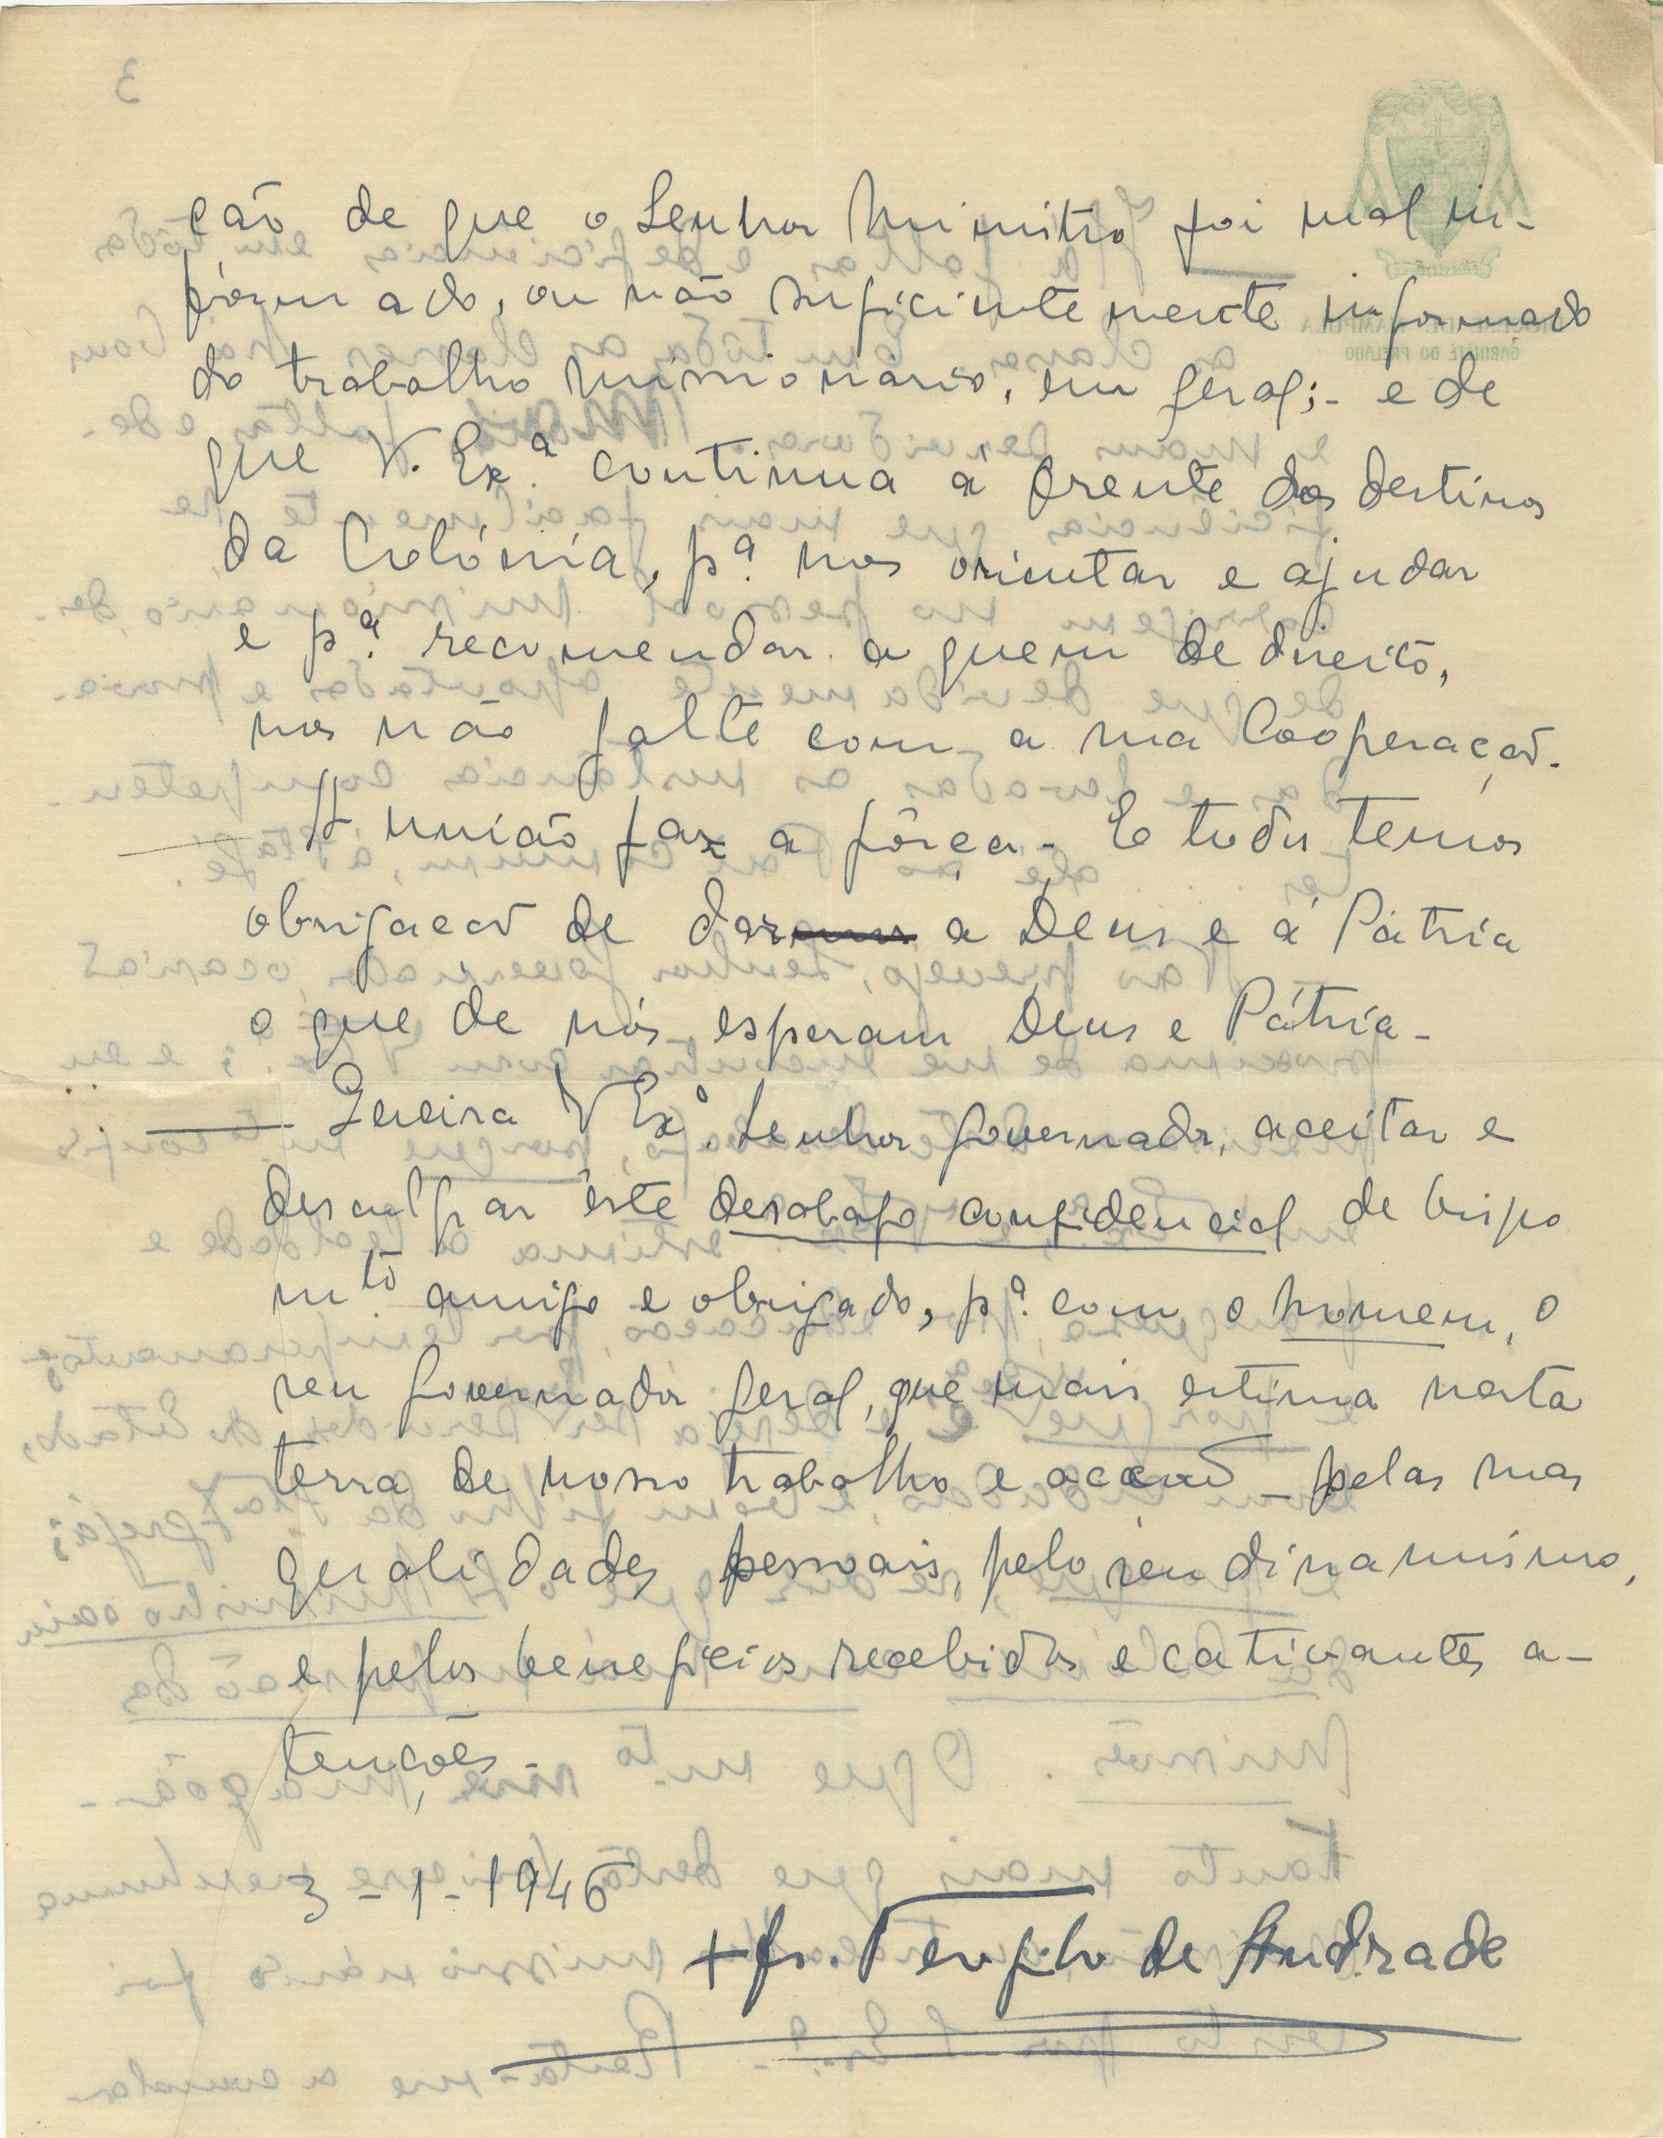 ção de que o Senhor Ministro foi mal in-
formado, ou não suficientemente informado
do trabalho missionário, em geral; - e de
que V. Exª. continua á frente dos destinos
da Colónia, pª. nos orientar e ajudar
e pª. recomendar a quem de direito,
nos não falte com a sua Cooperação.
— A união faz a fôrça - E todos temos
obrigação de dar a Deus e á Pátria
o que de nós esperam Deus e Pátria -
— Queira V Exª. Senhor Governador, aceitar e
desculpar êste desabafo confidencial de bispo
mtº. amigo e obrigado, pª. com o homem, o
seu Governador Geral, que mais estima nesta
terra de nosso trabalho e acção - pelas suas
qualidades pessoais, pelo seu dinamismo,
e pelos beneficios recebidos e cativantes a-
tenções -
3 - 1 - 1946
+ fr. Teofilo de Andrade